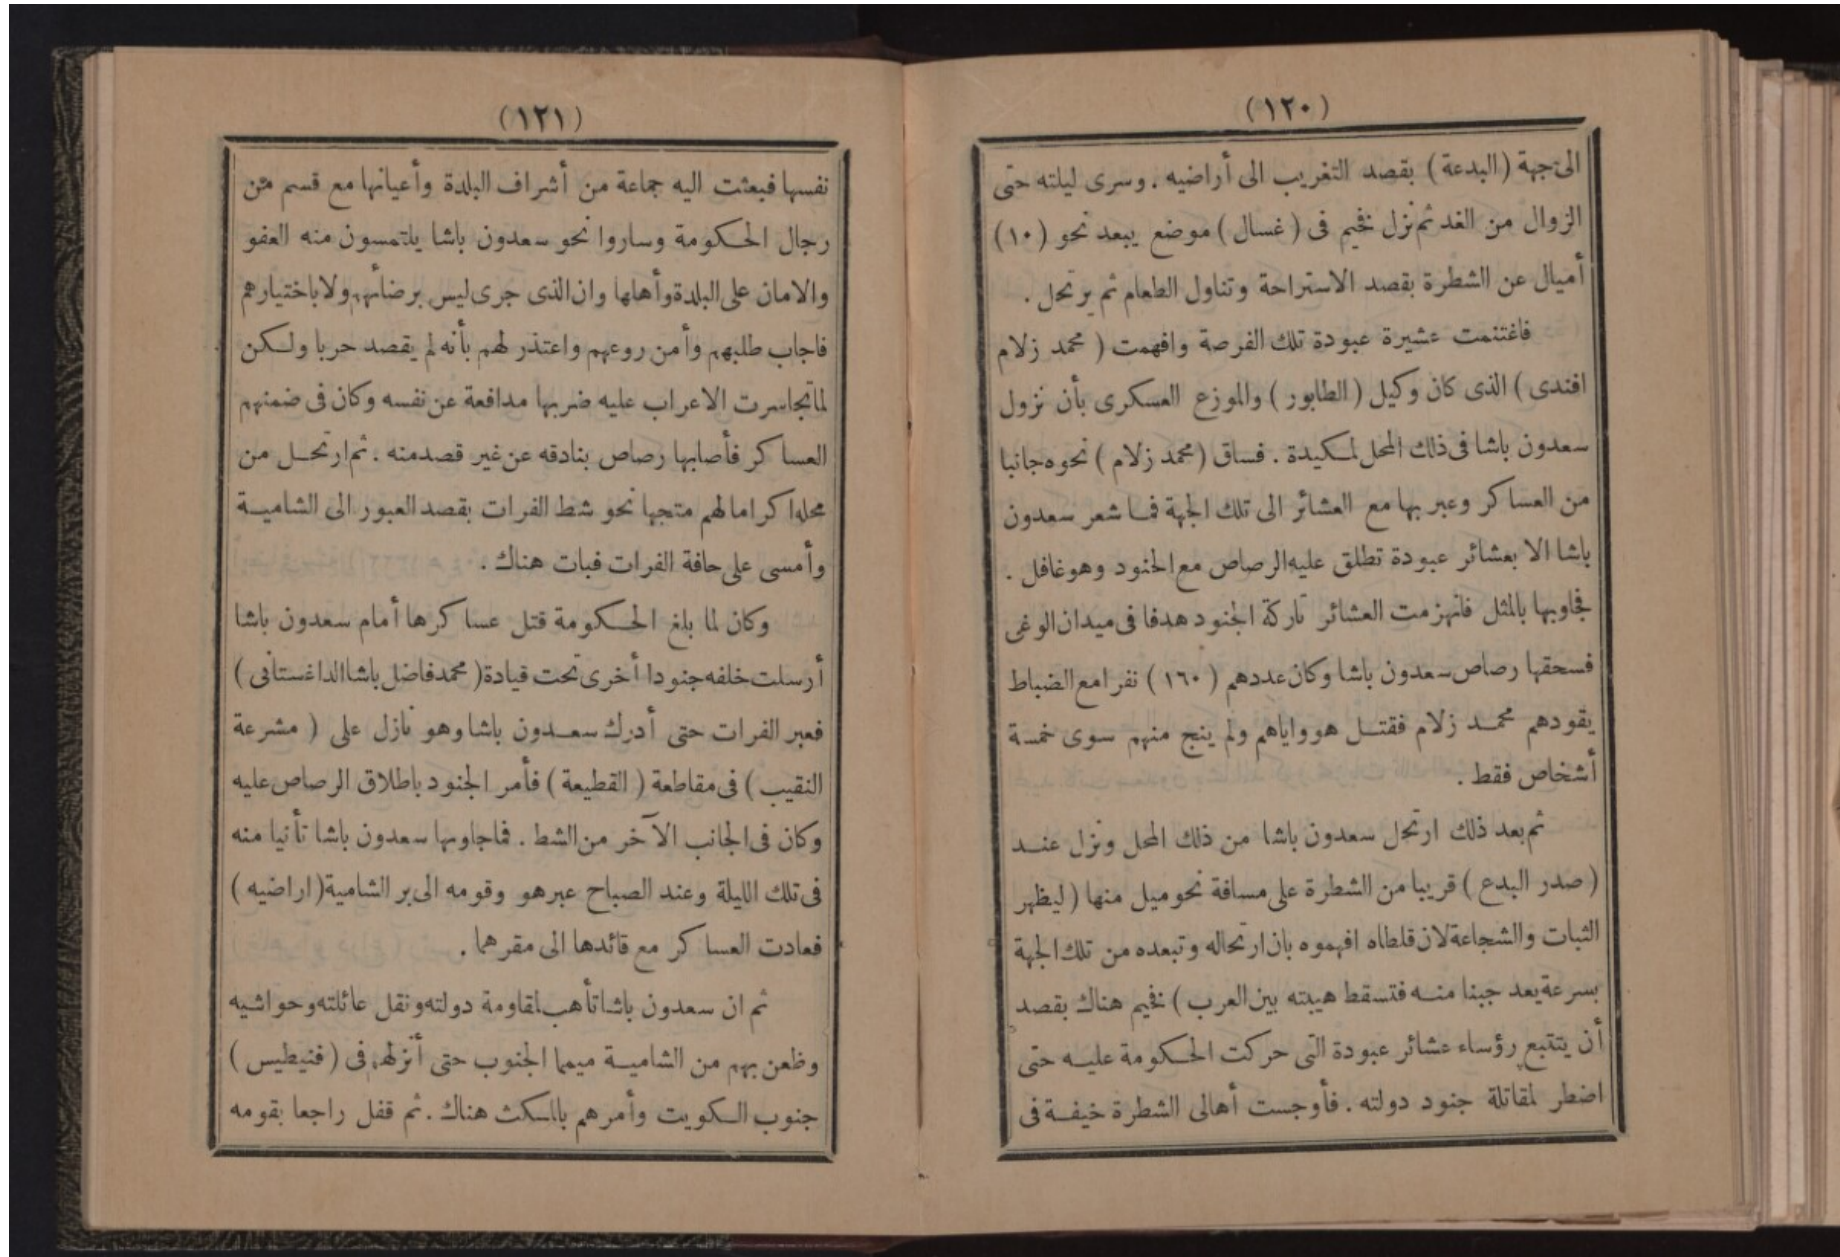 (١٢٠)
الى جهة (البدعة) بقصد التغريب الى أراضيه . وسرى ليلته حتى
الزوال من الغد ثم نزل فخيم فى (غسال) موضع يبعد نحو (١٠)
أميال عن الشطرة بقصد الاستراحة وتناول الطعام ثم يرتحل .
فاغتنمت عشيرة عبودة تلك الفرصة وافهمت (محمد زلام
افندى) الذى كان وكيل (الطابور) والموزع العسكرى بأن نزول
سعدون باشا فى ذلك المحل لمكيدة . فساق (محمد زلام) نحوه جانبا
من العساكر وعبر بها مع العشائر الى تلك الجهة فما شعر سعدون
باشا الا بعشائر عبودة تطلق عليه الرصاص مع الجنود وهو غافل .
فجاوبها بالمثل فانهزمت العشائر تاركة الجنود هدفا فى ميدان الوغى
فسحقها رصاص سعدون باشا وكان عددهم (١٦٠) نفرا مع الضباط
يقودهم محمد زلام فقتل هو واياهم ولم ينج منهم سوى خمسة
أشخاص فقط .
ثم بعد ذلك ارتحل سعدون باشا من ذلك المحل ونزل عند
(صدر البدع) قريبا من الشطرة على مسافة نحو ميل منها (ليظهر
الثبات والشجاعة لان قلطاه افهموه بان ارتحاله وتبعده من تلك الجهة
بسرعة يعد جبنا منه فتسقط هيبته بين العرب) فخيم هناك بقصد
أن يتتبع رؤساء عشائر عبودة التى حركت الحكومة عليه حتى
اضطر لمقاتلة جنود دولته . فأوجست أهالى الشطرة خيفة فى
(١٢١)
نفسها فبعثت اليه جماعة من أشراف البلدة وأعيانها مع قسم من
رجال الحكومة وساروا نحو سعدون باشا يلتمسون منه العفو
والامان على البلدة وأهلها وان الذى جرى ليس برضائهم ولا باختيارهم
فاجاب طلبهم وأمن روعهم واعتذر لهم بأنه لم يقصد حربا ولكن
لما تجاسرت الاعراب عليه ضربها مدافعة عن نفسه وكان فى ضمنهم
العساكر فأصابها رصاص بنادقه عن غير قصد منه . ثم ارتحل من
محله اكراما لهم متجها نحو شط الفرات بقصد العبور الى الشامية
وأمسى على حافة الفرات فبات هناك .
وكان لما بلغ الحكومة قتل عساكرها أمام سعدون باشا
أرسلت خلفه جنودا أخرى تحت قيادة (محمد فاضل باشا الداغستانى)
فعبر الفرات حتى أدرك سعدون باشا وهو نازل على (مشرعة
النقيب) فى مقاطعة (القطيعة) فأمر الجنود باطلاق الرصاص عليه
وكان فى الجانب الآخر من الشط . فما جاوبها سعدون باشا تأنيا منه
فى تلك الليلة وعند الصباح عبر هو وقومه الى بر الشامية (اراضيه)
فعادت العساكر مع قائدها الى مقرهما .
ثم ان سعدون باشا تأهب لمقاومة دولته ونقل عائلته وحواشيه
وظعن بهم من الشامية ميمما الجنوب حتى أنزلهم فى (فنيطيس)
جنوب الكويت وأمرهم بالمكث هناك . ثم قفل راجعا بقومه